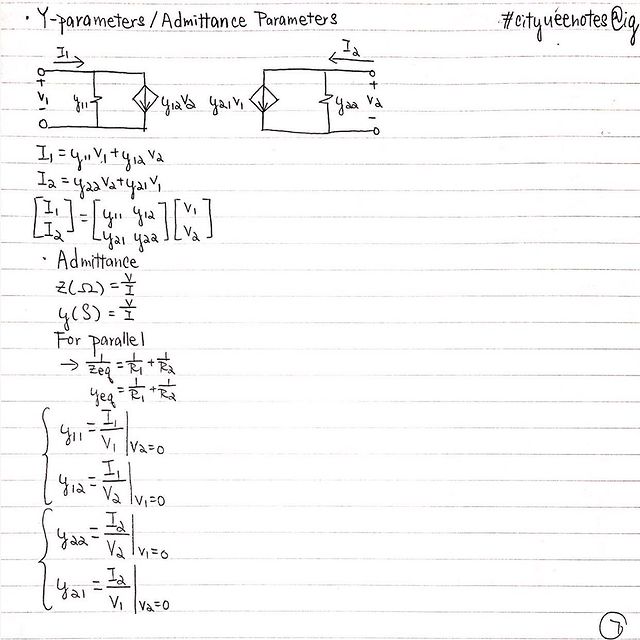 · Y-parameters/Admittance Parameters #cityueenotes@ig
I1 I2
+ V1 - y11 y12V2 y21V1 y22 + V2 -
I1 = y11V1 + y12V2
I2 = y22V2 + y21V1
[I1 I2] = [y11 y12 y21 y22] [V1 V2]
· Admittance
Z(Ω) = V/I
y(S) = V/I
For parallel
→ 1/Zeq = 1/R1 + 1/R2
yeq = 1/R1 + 1/R2
y11 = I1/V1 | V2=0
y12 = I1/V2 | V1=0
y22 = I2/V2 | V1=0
y21 = I2/V1 | V2=0
7